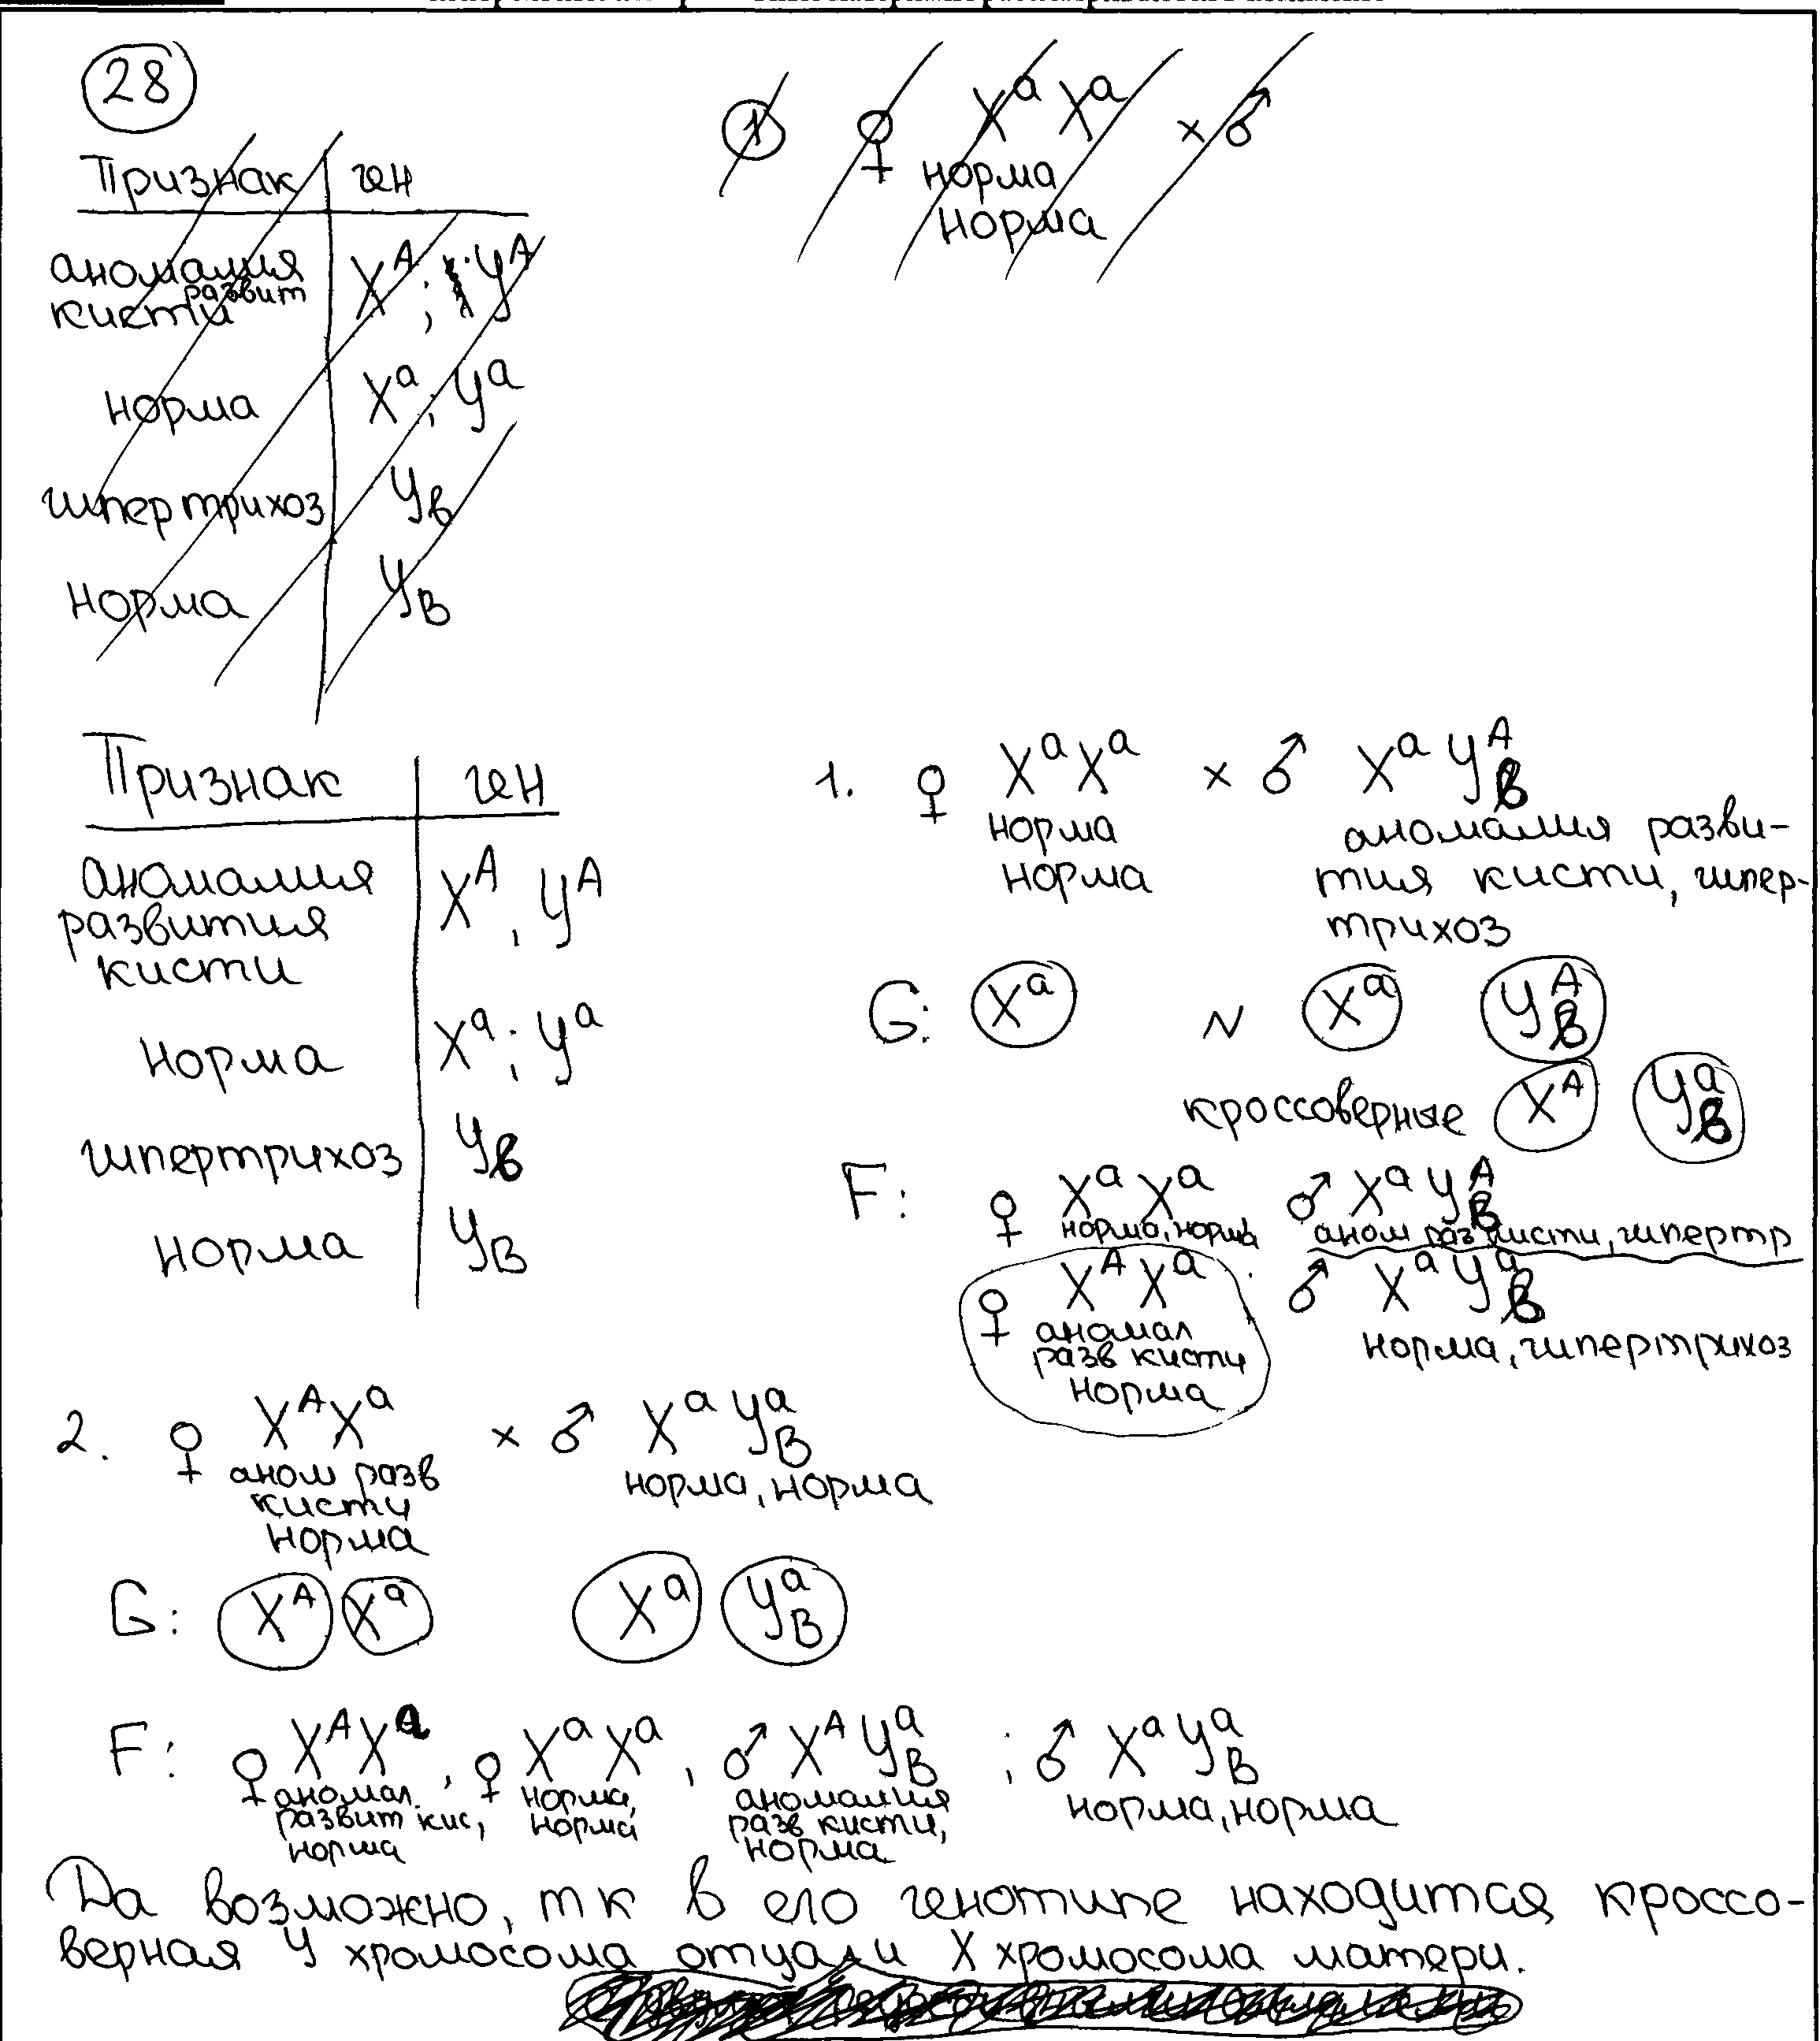 28
Признак ген
аномалия
развит
кисти X^A; Y^A
норма X^a; Y^a
гипертрихоз Yв
норма YB
1 ♀ X^a X^a × ♂
норма
норма
Признак ген
аномалия
развития
кисти X^A, Y^A
норма X^a; Y^a
гипертрихоз Yв
норма YB
1. ♀ X^a X^a × ♂ X^a Y^A_в
норма аномалия разви-
норма тия кисти, гипер-
трихоз
G: X^a N X^a Y^A_в
кроссоверные X^A Y^a_в
F: ♀ X^a X^a ♂ X^a Y^A_в
норма, норма аном раз кисти, гипертр
♀ X^A X^a ♂ X^a Y^a_в
аномал норма, гипертрихоз
разв кисти
норма
2. ♀ X^A X^a × ♂ X^a Y^a_B
аном разв норма, норма
кисти
норма
G: X^A X^a X^a Y^a_B
F: ♀ X^A X^a, ♀ X^a X^a, ♂ X^A Y^a_B ; ♂ X^a Y^a_B
аномал. норма, аномалия норма, норма
развит кис, норма разв кисти,
норма норма
Да возможно, тк в его генотипе находится кроссо-
верная Y хромосома отца и X хромосома матери.